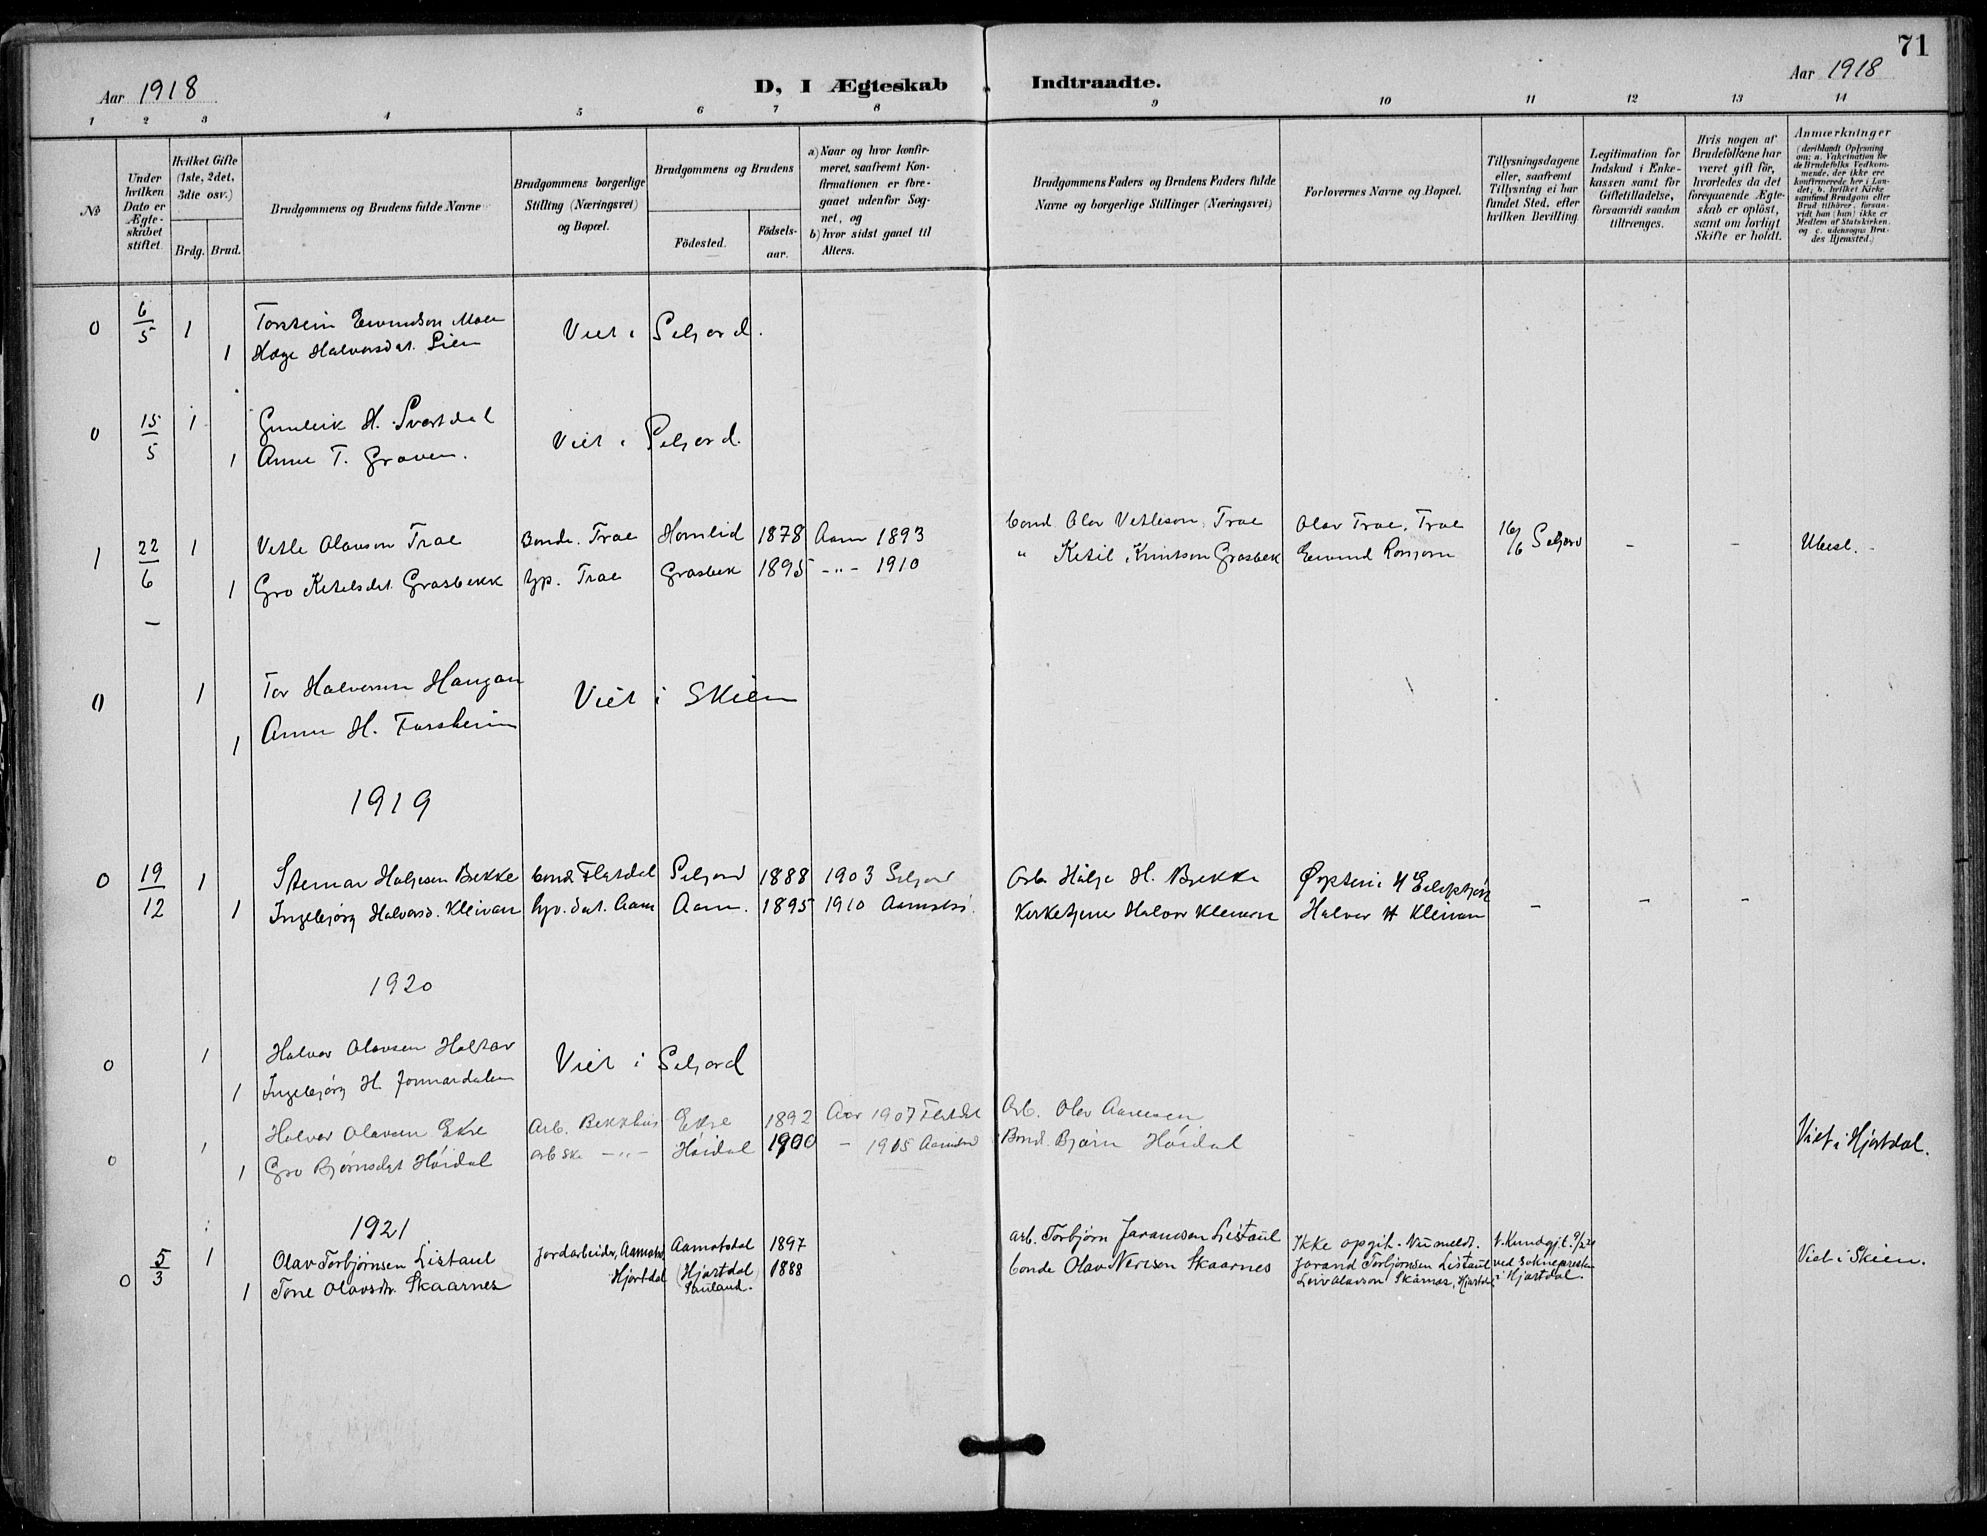 71
Aar 1918
D, I Ægteskab Indtraadte.
Aar 1918
1 2 3 4 5 6 7 8 9 10 11 12 13 14
№
Under hvilken Dato er Ægteskabet stiftet.
Hvilket Gifte (1ste, 2det, 3die osv.)
Brdg. Brud.
Brudgommens og Brudens fulde Navne
Brudgommens borgerlige Stilling (Næringsvei) og Bopæl.
Brudgommens og Brudens
Födested.
Födsels-aar.
a) Naar og hvor konfirmeret, saafremt Konfirmationen er foregaaet udenfor Sognet, og
b) hvor sidst gaaet til Alters.
Brudgommens Faders og Brudens Faders fulde Navne og borgerlige Stillinger (Næringsvei)
Forlovernes Navne og Bopæl.
Tillysningsdagene eller, saafremt Tillysning ei har fundet Sted, efter hvilken Bevilling.
Legitimation for Indskud i Enkekassen samt for Giftetilladelse, forsaavidt saadan tiltrænges.
Hvis nogen af Brudefolkene har været gift før, hvorledes da det foregaaende Ægteskab er oplöst, samt om lovligt Skifte er holdt.
Anmærkninger
(deriblandt Oplysning om: a. Vakcination for de Brudefolks Vedkommende, der ikke ere konfirmerede her i Landet; b. hvilket Kirkesamfund Brudgom eller Brud tilhörer, forsavidt han (hun) ikke er Medlem af Statskirken, og c. udensogns Brudes Hjemsted.)
0 6/5 1 Torstein Eivindson Moen Viet i Seljord.
1 Hæge Halvorsdat. Lien
0 15/5 1 Gunleik H. Svartdal Viet i Seljord.
1 Anne T. Graven.
1 22/6 1 Vetle Olavson Trae Bonde. Trae Homlid 1878 Aam 1893 bond Olav Vetleson, Trae Olav Trae, Trae 16/6 Seljord - - Ubesl.
1 Gro Ketelsdat. Grasbekk Trae Grasbek 1895 -"- 1910 " Ketil Knutson Grasbek Eivind
0 1 Tor Halvorsen Haugan Viet i Skien
1 Anne H. Forsheim
1919
0 19/12 1 Steinar Høljesen Bekke bond Flatdal Seljord 1888 1903 Seljord Arb. Hølje H. Bekke
1 Ingebjørg Halvorsd. Kleivan Aam Aam. 1895 1910 Kirketjener Halvor Kleivan Halvor H Kleivan - - -
1920
0 1 Halvor Olavsen Haltar Viet i Seljord
1 Ingebjørg H. Jonnardalen
1 Halvor Olavsen Ekre Arb. Bekkhus Ekre 1892 Aar 1907 Flatdal Arb. Olav Aamesen
0 1 Gro Bjørnsdat Høidal arbske -"- Høidal 1900 - 1915 Bond. Bjørn Høidal Viet i Hjartdal.
1921
0 5/3 1 Olav Torbjørnsen Listaul Jordarbeider, Aamotsd. Aamotsdal 1897 arb. Torbjørn Jaramson Listaul Ikke opgit. V. Kundgjt. Viet i Skien.
1 Tone Olavsdtr. Skaarnes Hjartdal (Hjartdal) Sauland. 1888 bonde Olav Nerisen Skaarnes Jorand Torbjørnsen Listaul ved Soknepresten
Leiv Olavson Skårnes, Hjartdal i Hjartdal.